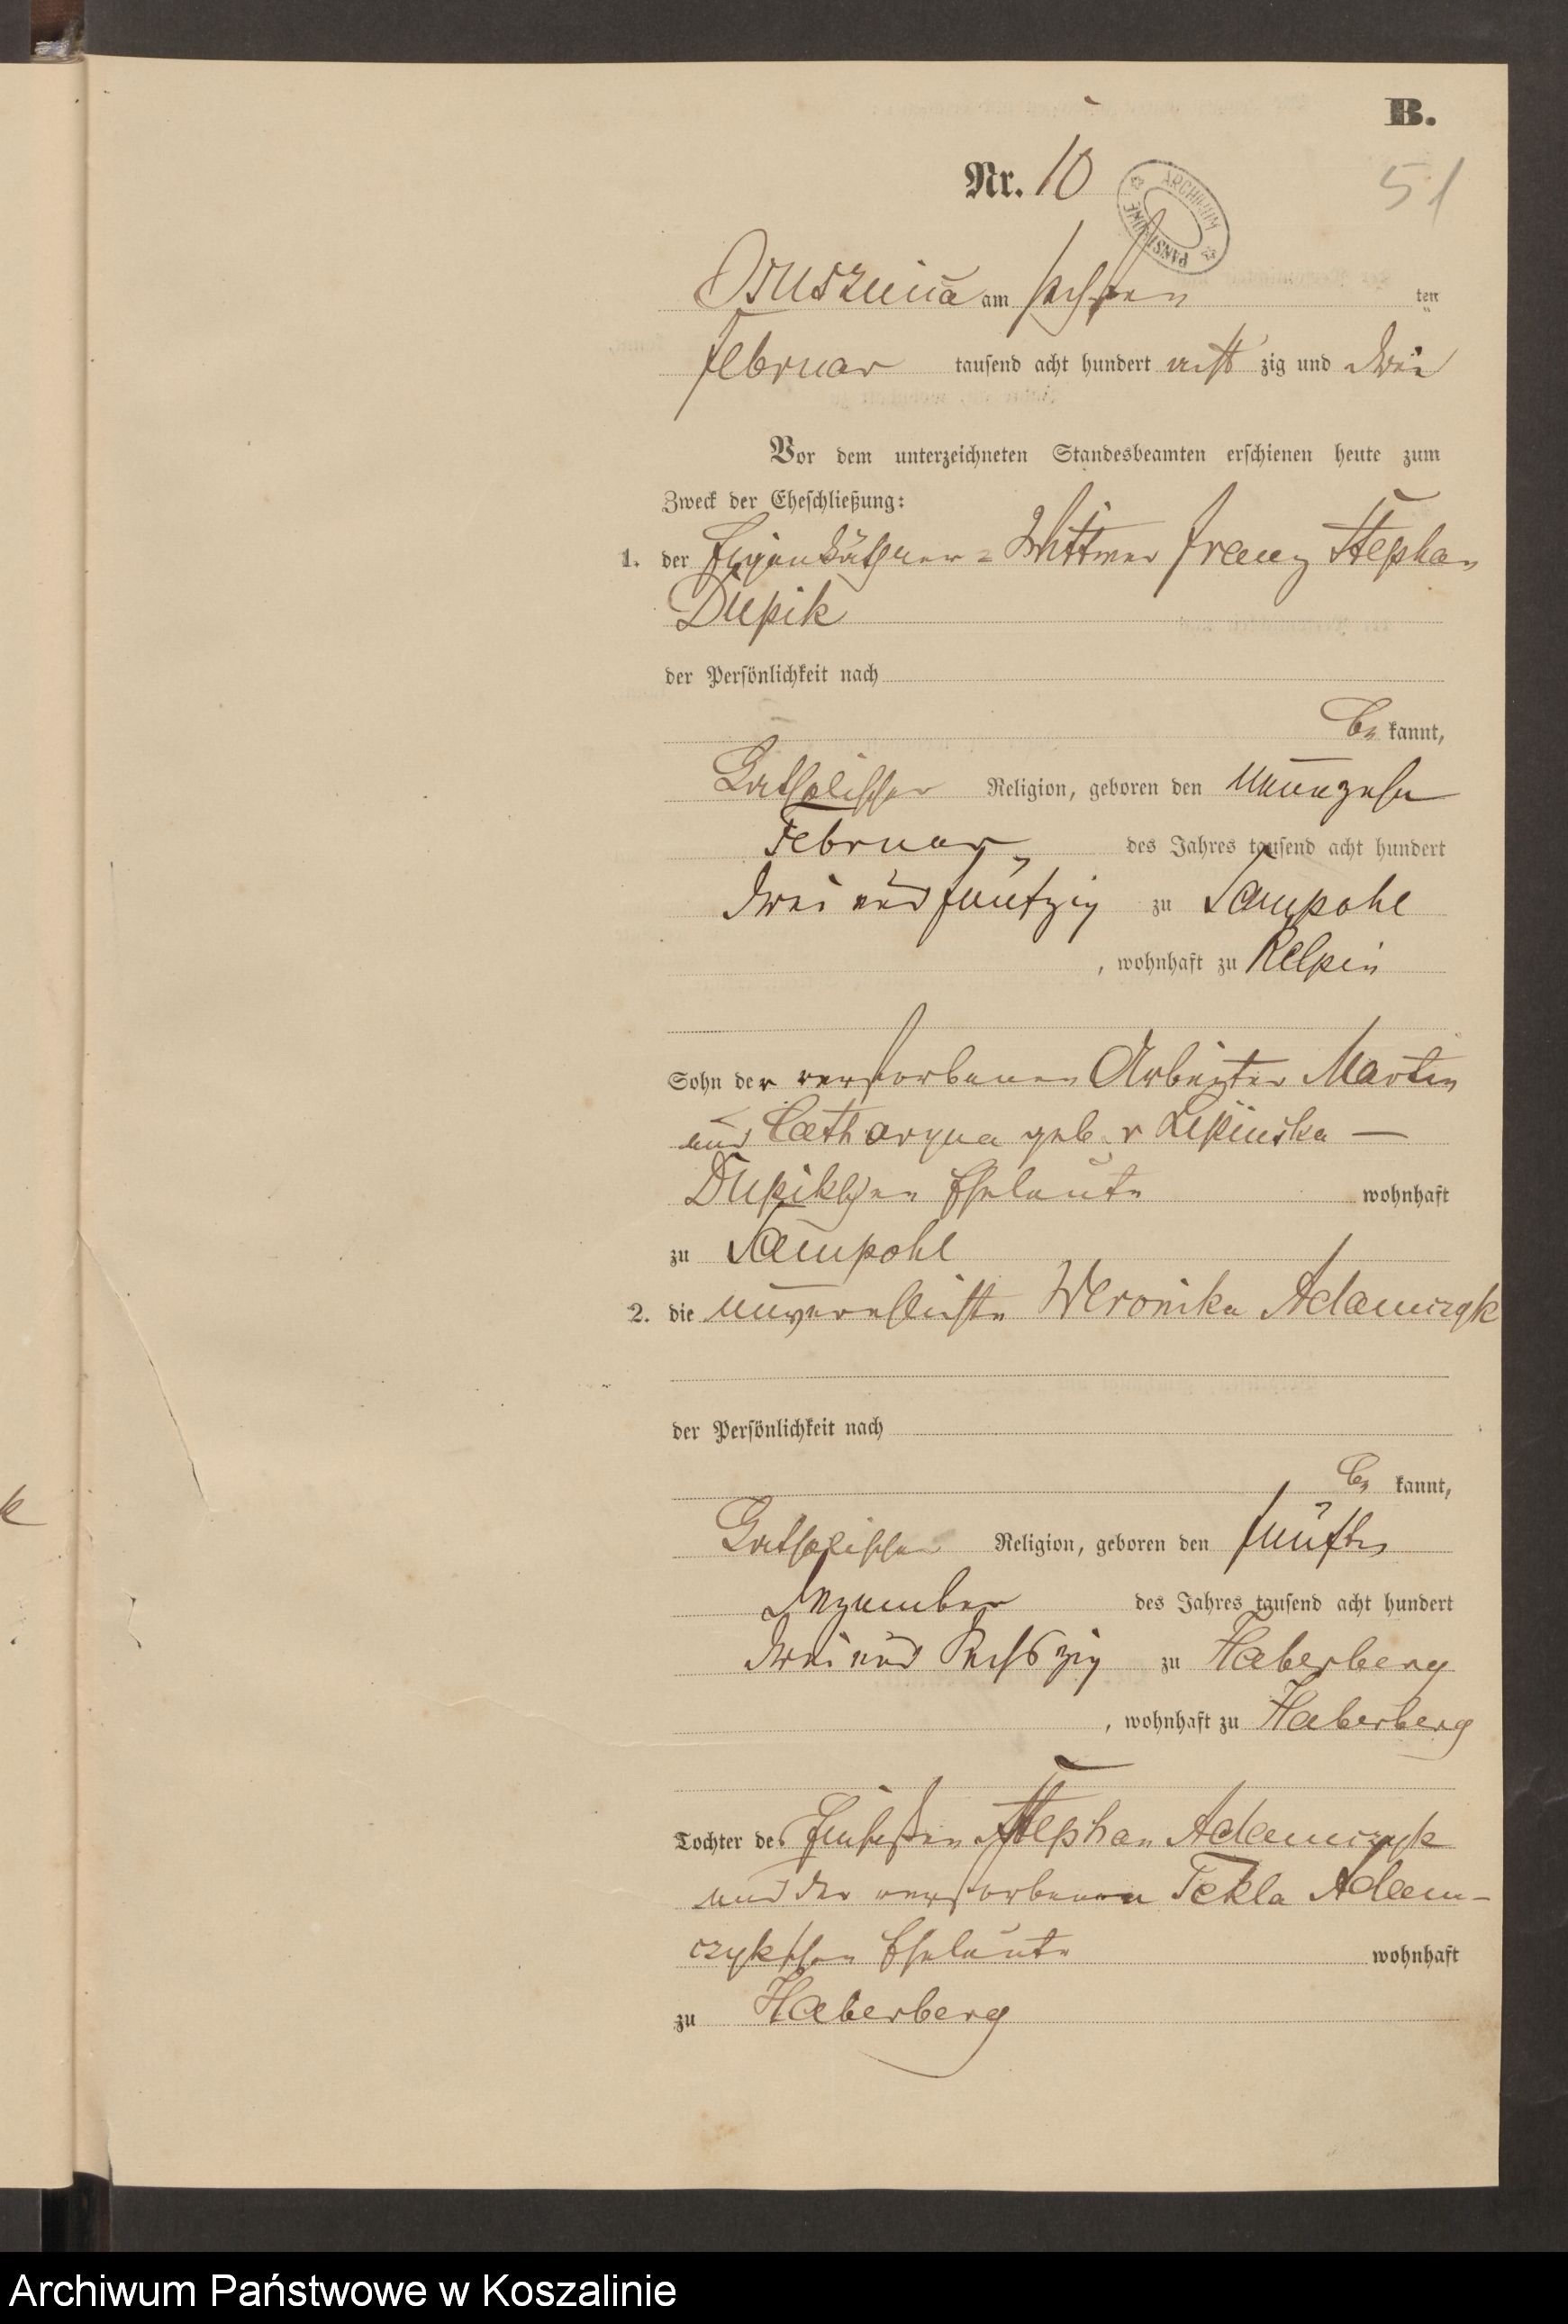 B.
Nr. 10
51
ARCHIWUM PAŃSTWOWE
Osusznica am sechsten ten
Februar tausend acht hundert acht zig und drei
Vor dem unterzeichneten Standesbeamten erschienen heute zum
Zweck der Eheschließung:
1. der Eigenkäthner-Wittwer Franz Stephan
Dupik
der Persönlichkeit nach
be kannt,
katholischer Religion, geboren den neunzehn
Februar des Jahres tausend acht hundert
drei und fünfzig zu Sampohl
, wohnhaft zu Kelpin
Sohn der verstorbenen Arbeiter Martin
und Catharyna geb. v Lipinska —
Dupikschen Eheleute wohnhaft
zu Sampohl
2. die unverehlichte Weronika Adamczyk
der Persönlichkeit nach
be kannt,
katholischer Religion, geboren den fünften
Dezember des Jahres tausend acht hundert
drei und sechszig zu Haberberg
, wohnhaft zu Haberberg
Tochter des Einsaßen Stephan Adamczyk
und der verstorbenen Tekla Adam-
czykschen Eheleute wohnhaft
zu Haberberg
Archiwum Państwowe w Koszalinie